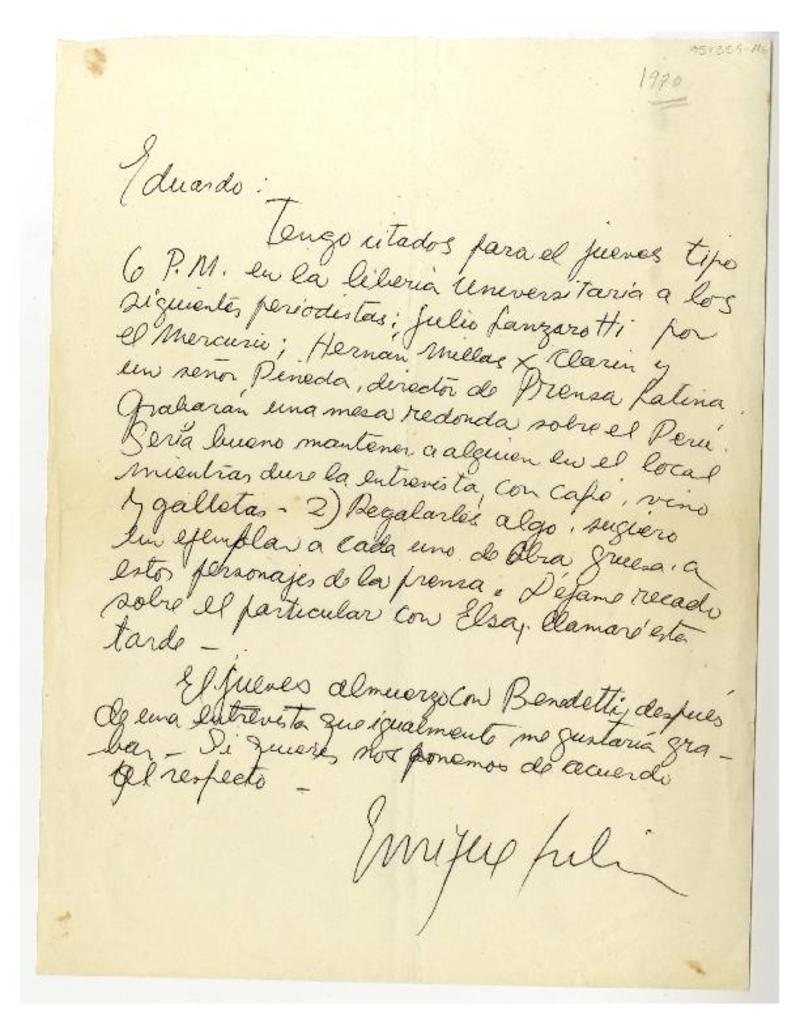 1980
Eduardo:
Tengo citados para el jueves tipo
6 P.M. en la libería Universitaria a los
siguientes periodistas; Julio Lanzarotti por
el Mercurio; Hernán Millas x Clarín y
un señor Pineda, director de Prensa Latina.
Grabarán una mesa redonda sobre el Perú.
Sería bueno mantener a alguien en el local
mientras dure la entrevista, con café, vino
y galletas - 2) Regalarles algo, sugiero
un ejemplar a cada uno de Obra gruesa, a
estos personajes de la prensa. Déjame recado
sobre el particular con Elsa, llamaré esta
tarde -
El jueves almuerzo con Benedetti, después
de una entrevista que igualmente me gustaría gra-
bar - Si quieres nos ponemos de acuerdo
al respecto -
Enrique